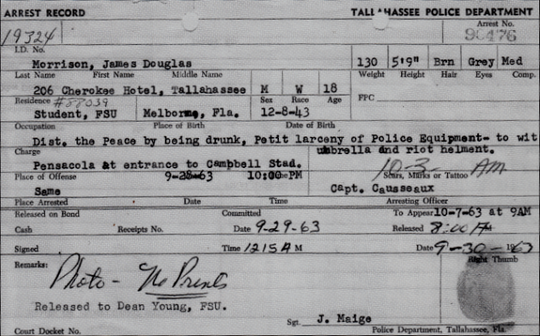 ARREST RECORD TALLAHASSEE POLICE DEPARTMENT
19324 Arrest No.
I.D. No. 90476
Morrison, James Douglas 130 5'9" Brn Grey Med
Last Name First Name Middle Name Weight Height Hair Eyes Comp.
206 Cherokee Hotel, Tallahassee M W 18
Residence #88039 Sex Race Age FPC
Student, FSU Melborne, Fla. 12-8-43
Occupation Place of Birth Date of Birth
Dist. the Peace by being drunk, Petit larceny of Police Equipment- to wit
Charge umbrella and riot helment.
Pensacola at entrance to Campbell Stad. 10-3- AM
Place of Offense 9-28-63 10:00 PM Scars, Marks or Tattoo
Same Capt. Causseaux
Place Arrested Date Time Arresting Officer
Released on Bond Committed To Appear 10-7-63 at 9AM
Cash Receipts No. Date 9-29-63 Released 8:00 A
Signed Time 1215 A M Date 9-30-1963
Remarks: Right Thumb
Photo - No Prints
Released to Dean Young, FSU.
Sgt J. Maige
Court Docket No. Police Department, Tallahassee, Fla.